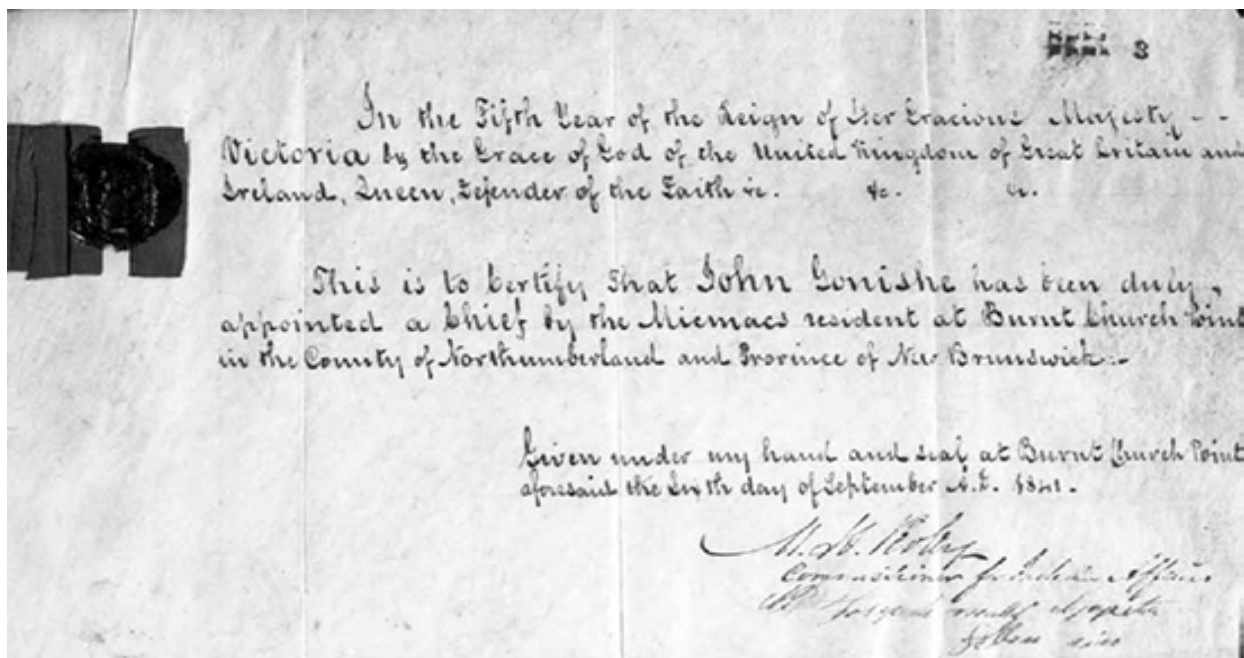 3
In the Fifth Year of the Reign of Her Gracious Majesty - -
Victoria by the Grace of God of the United Kingdom of Great Britain and
Ireland, Queen, Defender of the Faith &c. &c. &c.
This is to Certify that John Gonishe has been duly
appointed a Chief by the Micmacs resident at Burnt Church Point
in the County of Northumberland and Province of New Brunswick:-
Given under my hand and seal at Burnt Church Point
aforesaid the Sixth day of September A.D. 1841.
M. H. Perley
Commissioner for Indian Affairs